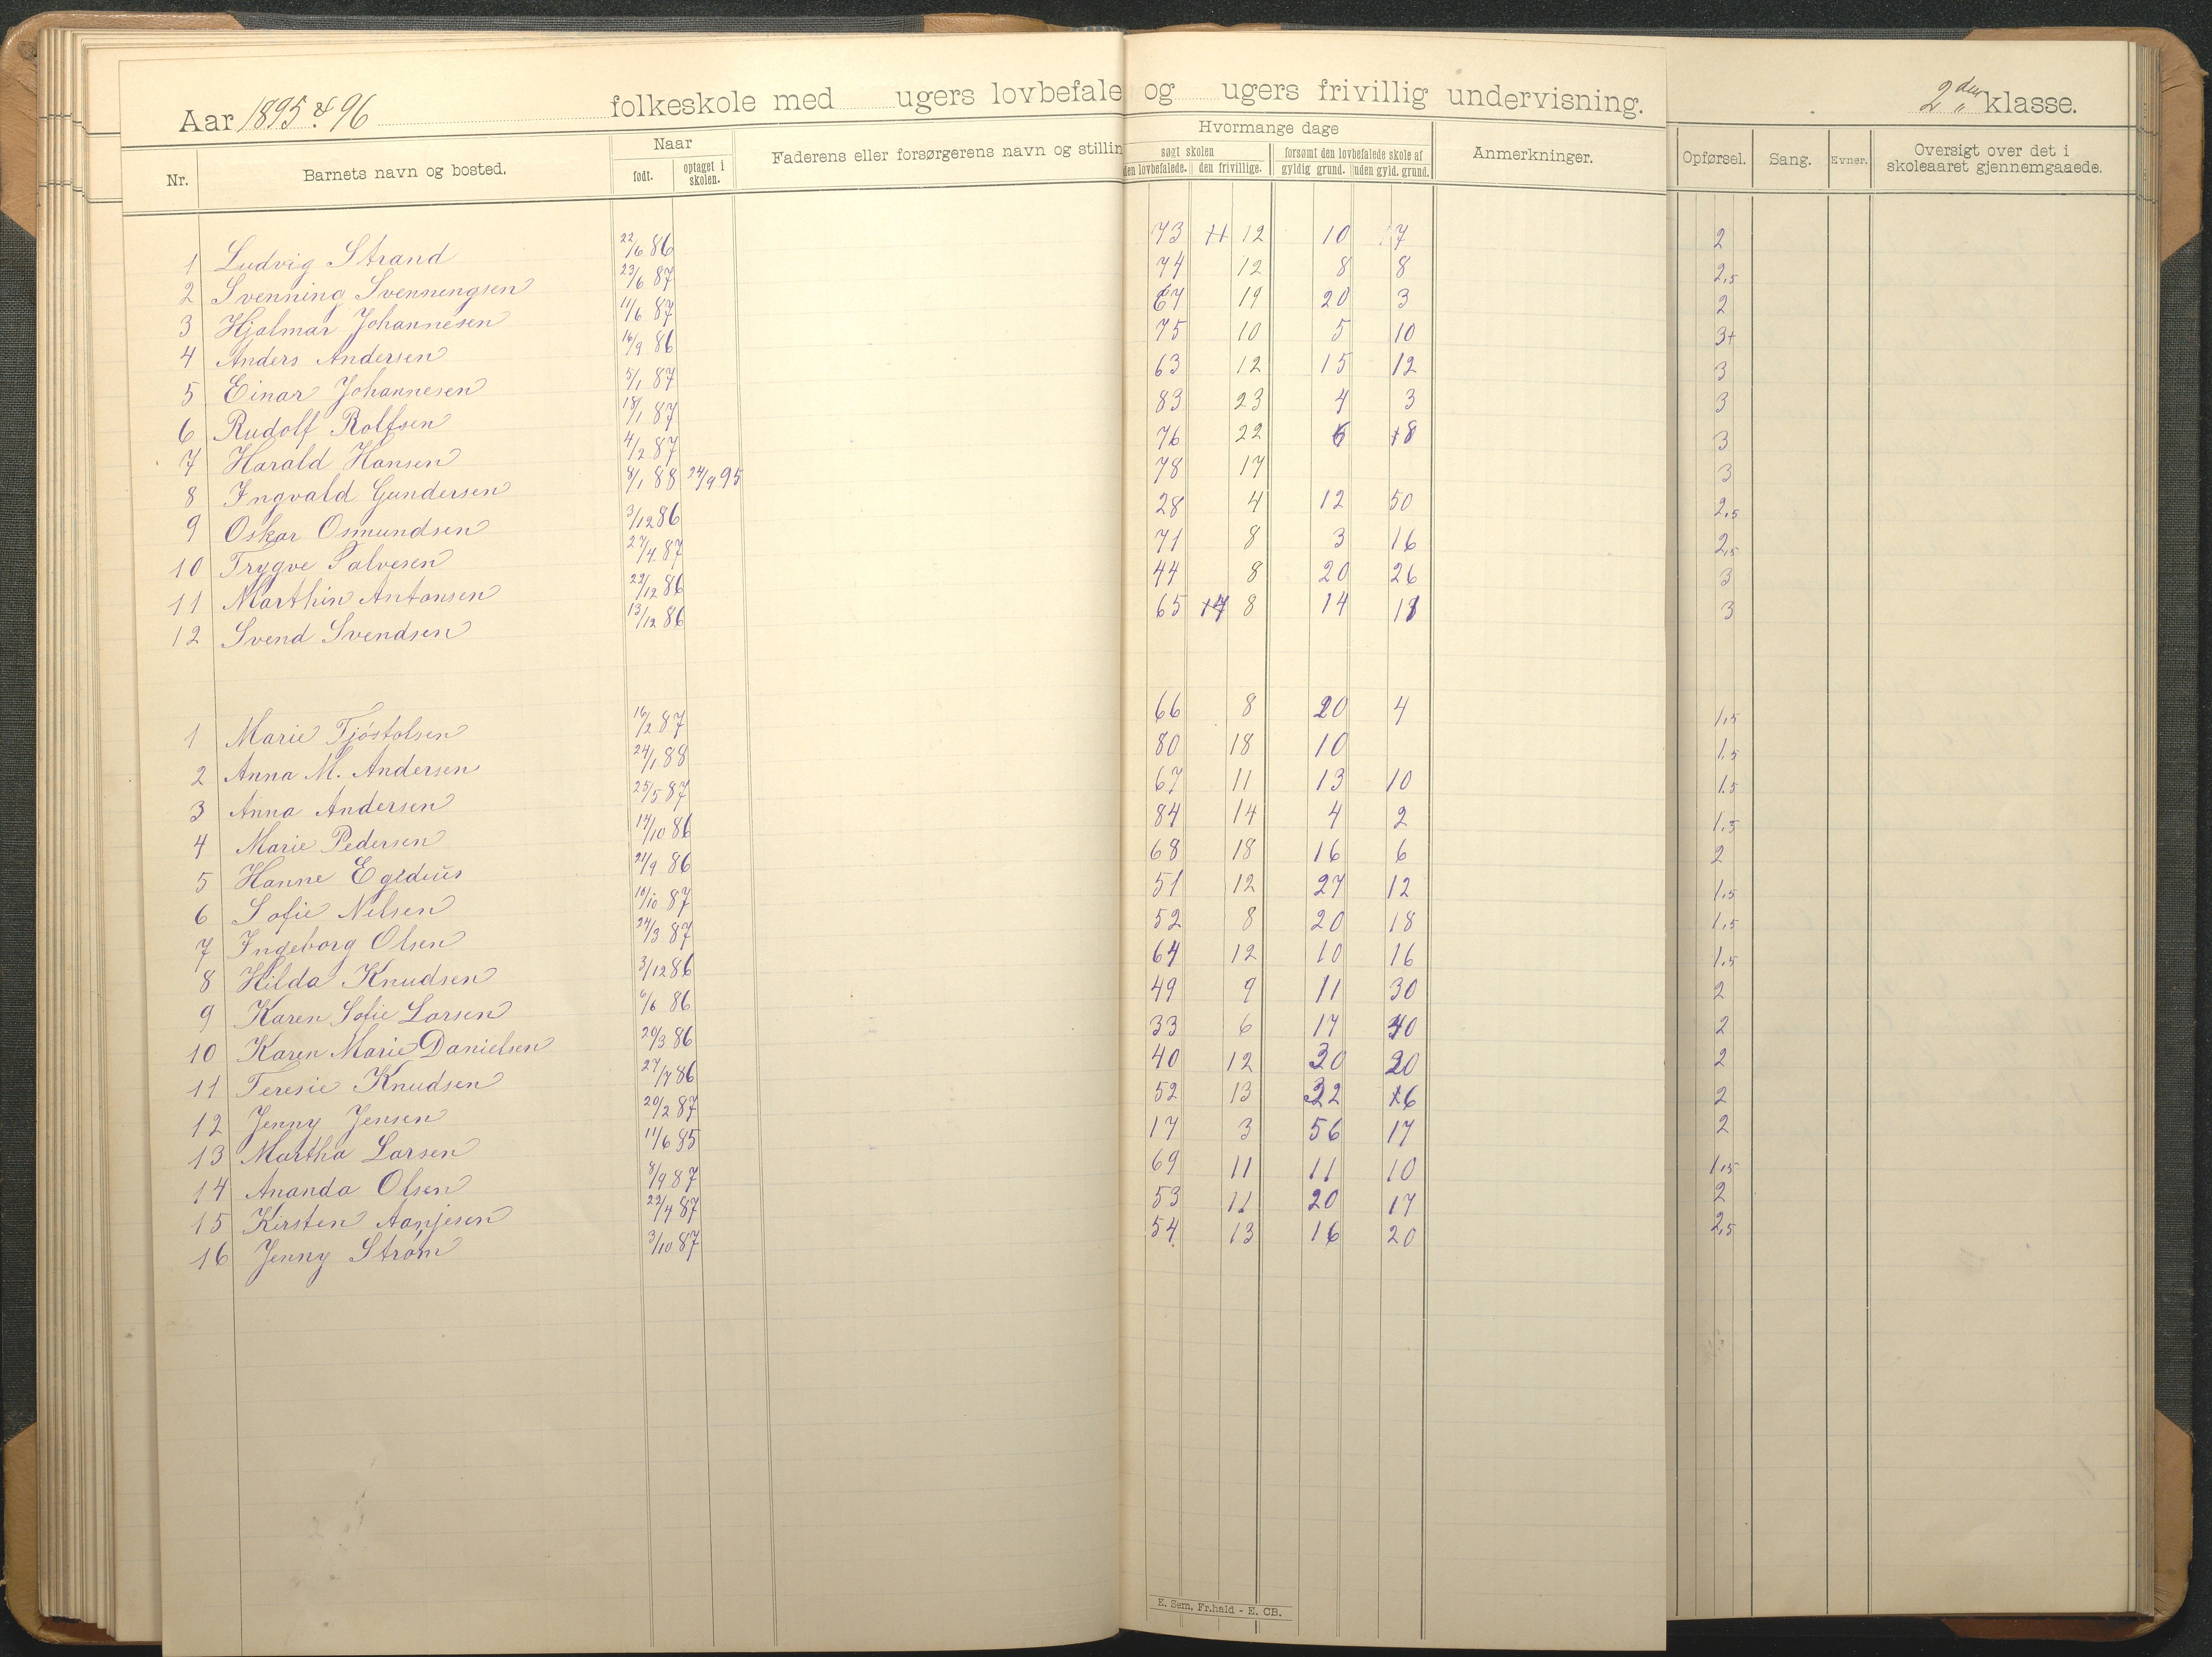 Aar 1895 & 96 folkeskole med ugers lovbefale og ugers frivillig undervisning. 2den klasse.
Nr. Barnets navn og bosted. Naar født. optaget i skolen. Faderens eller forsørgerens navn og stillin Hvormange dage søgt skolen den lovbefalede. den frivillige. forsømt den lovbefalede skole af gyldig grund. uden gyld. grund. Anmerkninger. Opførsel. Sang. Evner. Oversigt over det i skoleaaret gjennemgaaede.
1 Ludvig Strand 22/6 86 73 12 10 7 2
2 Svenning Svenningsen 23/6 87 74 12 8 8 2,5
3 Hjalmar Johannesen 11/6 87 67 19 20 3 2
4 Anders Andersen 16/9 86 75 10 5 10 3+
5 Einar Johannesen 5/1 87 63 12 15 12 3
6 Rudolf Rolfsen 18/1 87 83 23 4 3 3
7 Harald Hansen 4/2 87 76 22 6 8 3
8 Ingvald Gundersen 8/1 88 24/9 95 78 17 3
9 Oskar Osmundsen 3/12 86 28 4 12 50 2,5
10 Trygve Salvesen 27/4 87 71 8 3 16 2,5
11 Marthin Antonsen 22/12 86 44 8 20 26 3
12 Svend Svendsen 13/12 86 65 8 14 13 3
1 Marie Tjöstolsen 16/2 87 66 8 20 4 1,5
2 Anna M. Andersen 24/1 88 80 18 10 1,5
3 Anna Andersen 25/5 87 67 11 13 10 1.5
4 Marie Pedersen 14/10 86 84 14 4 2 1,5
5 Hanne Egidius 21/9 86 68 18 16 6 2
6 Sofie Nilsen 10/10 87 51 12 27 12 1,5
7 Ingeborg Olsen 24/3 87 52 8 20 18 1,5
8 Hilda Knudsen 3/12 86 64 12 10 16 1,5
9 Karen Sofie Larsen 6/6 86 49 9 11 30 2
10 Karen Marie Danielsen 20/3 86 33 6 17 40 2
11 Teresie Knudsen 27/7 86 40 12 30 20 2
12 Jenny Jensen 20/2 87 52 13 32 6 2
13 Martha Larsen 11/6 85 17 3 56 17 2
14 Ananda Olsen 8/9 87 69 11 11 10 1,5
15 Kirsten Aanjesen 22/4 87 53 11 20 17 2
16 Jenny Strøm 3/10 87 54 13 16 20 2,5
E. Sem, Fr.hald - E. CB.